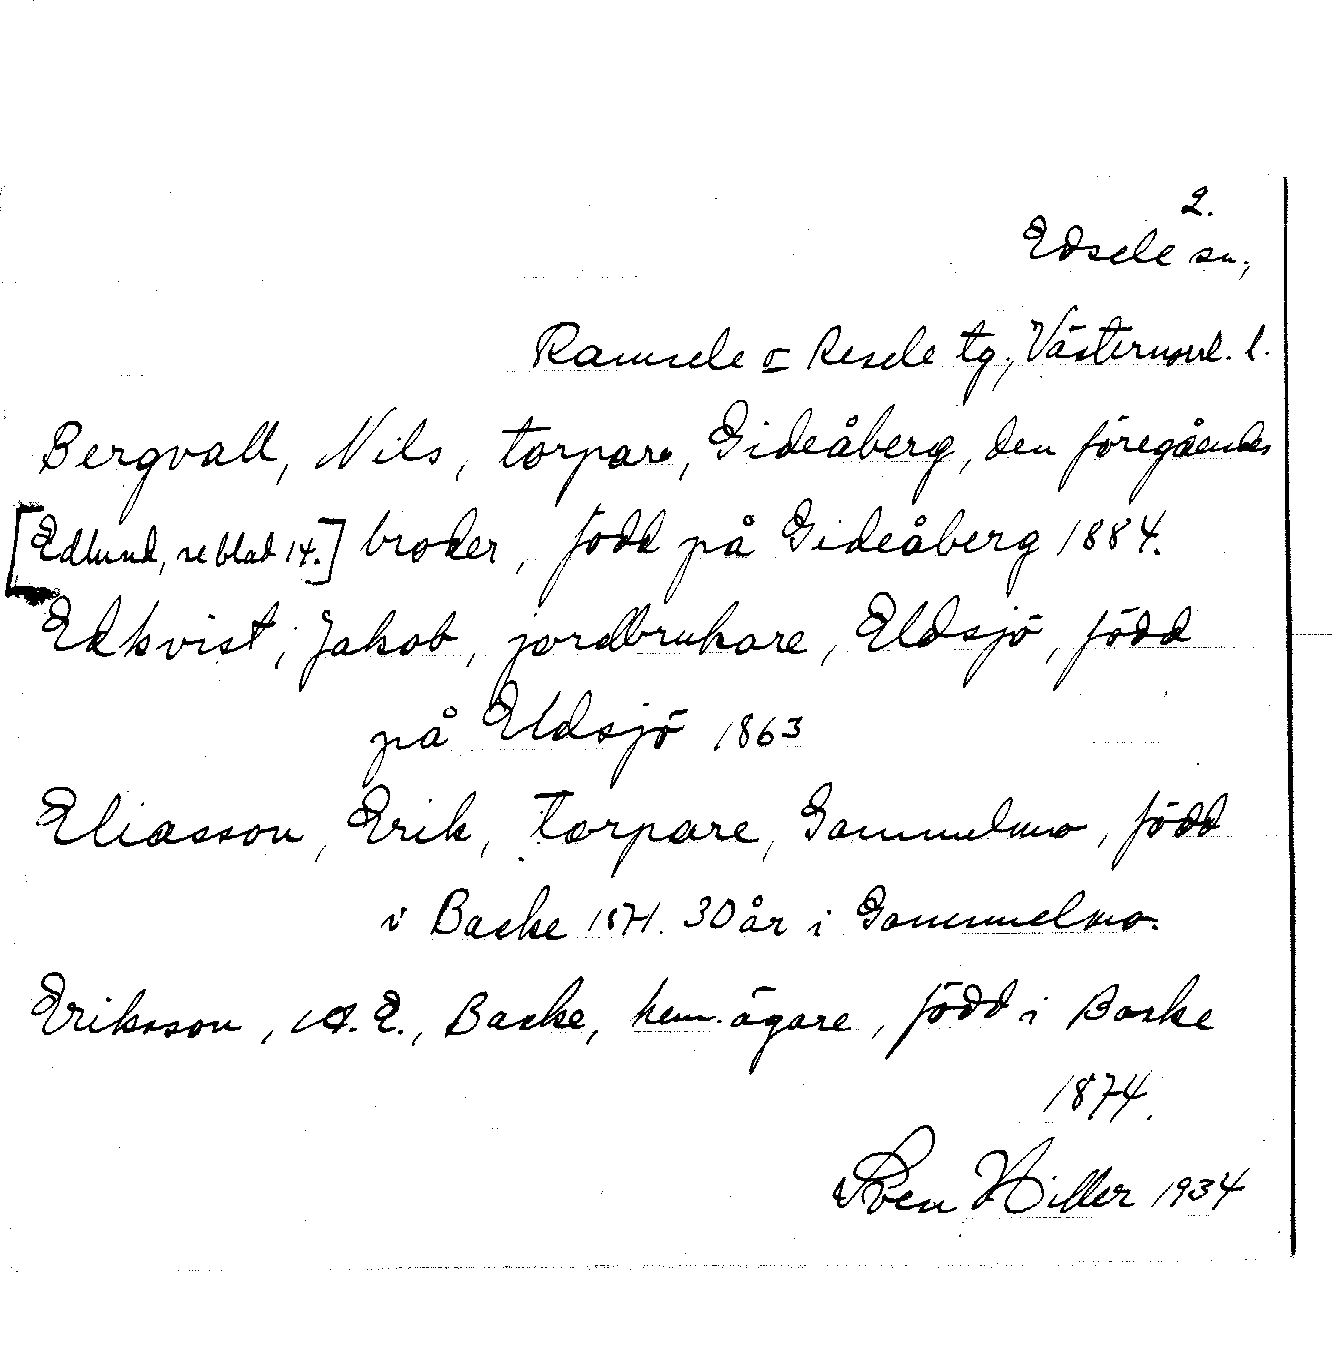 2.
Edsele sn.,
Ramsele o Resele tg, Västernorrl. l.
Bergvall, Nils, torpare, Gideåberg, den föregåendes
[Edlund, se blad 14.] broder, född på Gideåberg 1884.
Edkvist, Jakob, jordbrukare, Eldsjö, född
på Eldsjö 1863
Eliasson, Erik, torpare, Gammelmo, född
i Backe 1871. 30 år i Gammelmo.
Eriksson, A. E., Backe, hem.ägare, född i Backe
1874.
Sven Hiller 1934